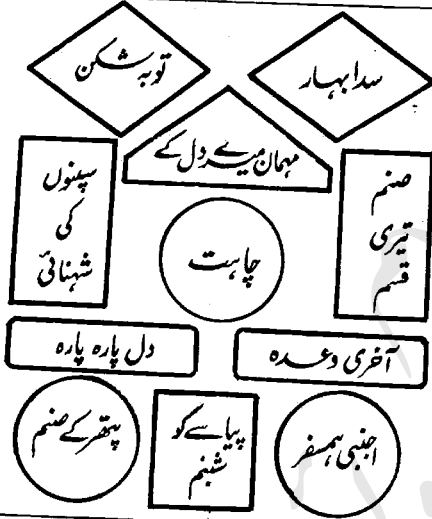 سدا بہار
توبہ شکن
مہمان میرے دل کے
صنم
تیری
قسم
سپنوں
کی
شہنائی
چاہت
آخری وعدہ
دل پارہ پارہ
اجنبی ہمسفر
پیاسے کو
شبنم
پتھر کے صنم